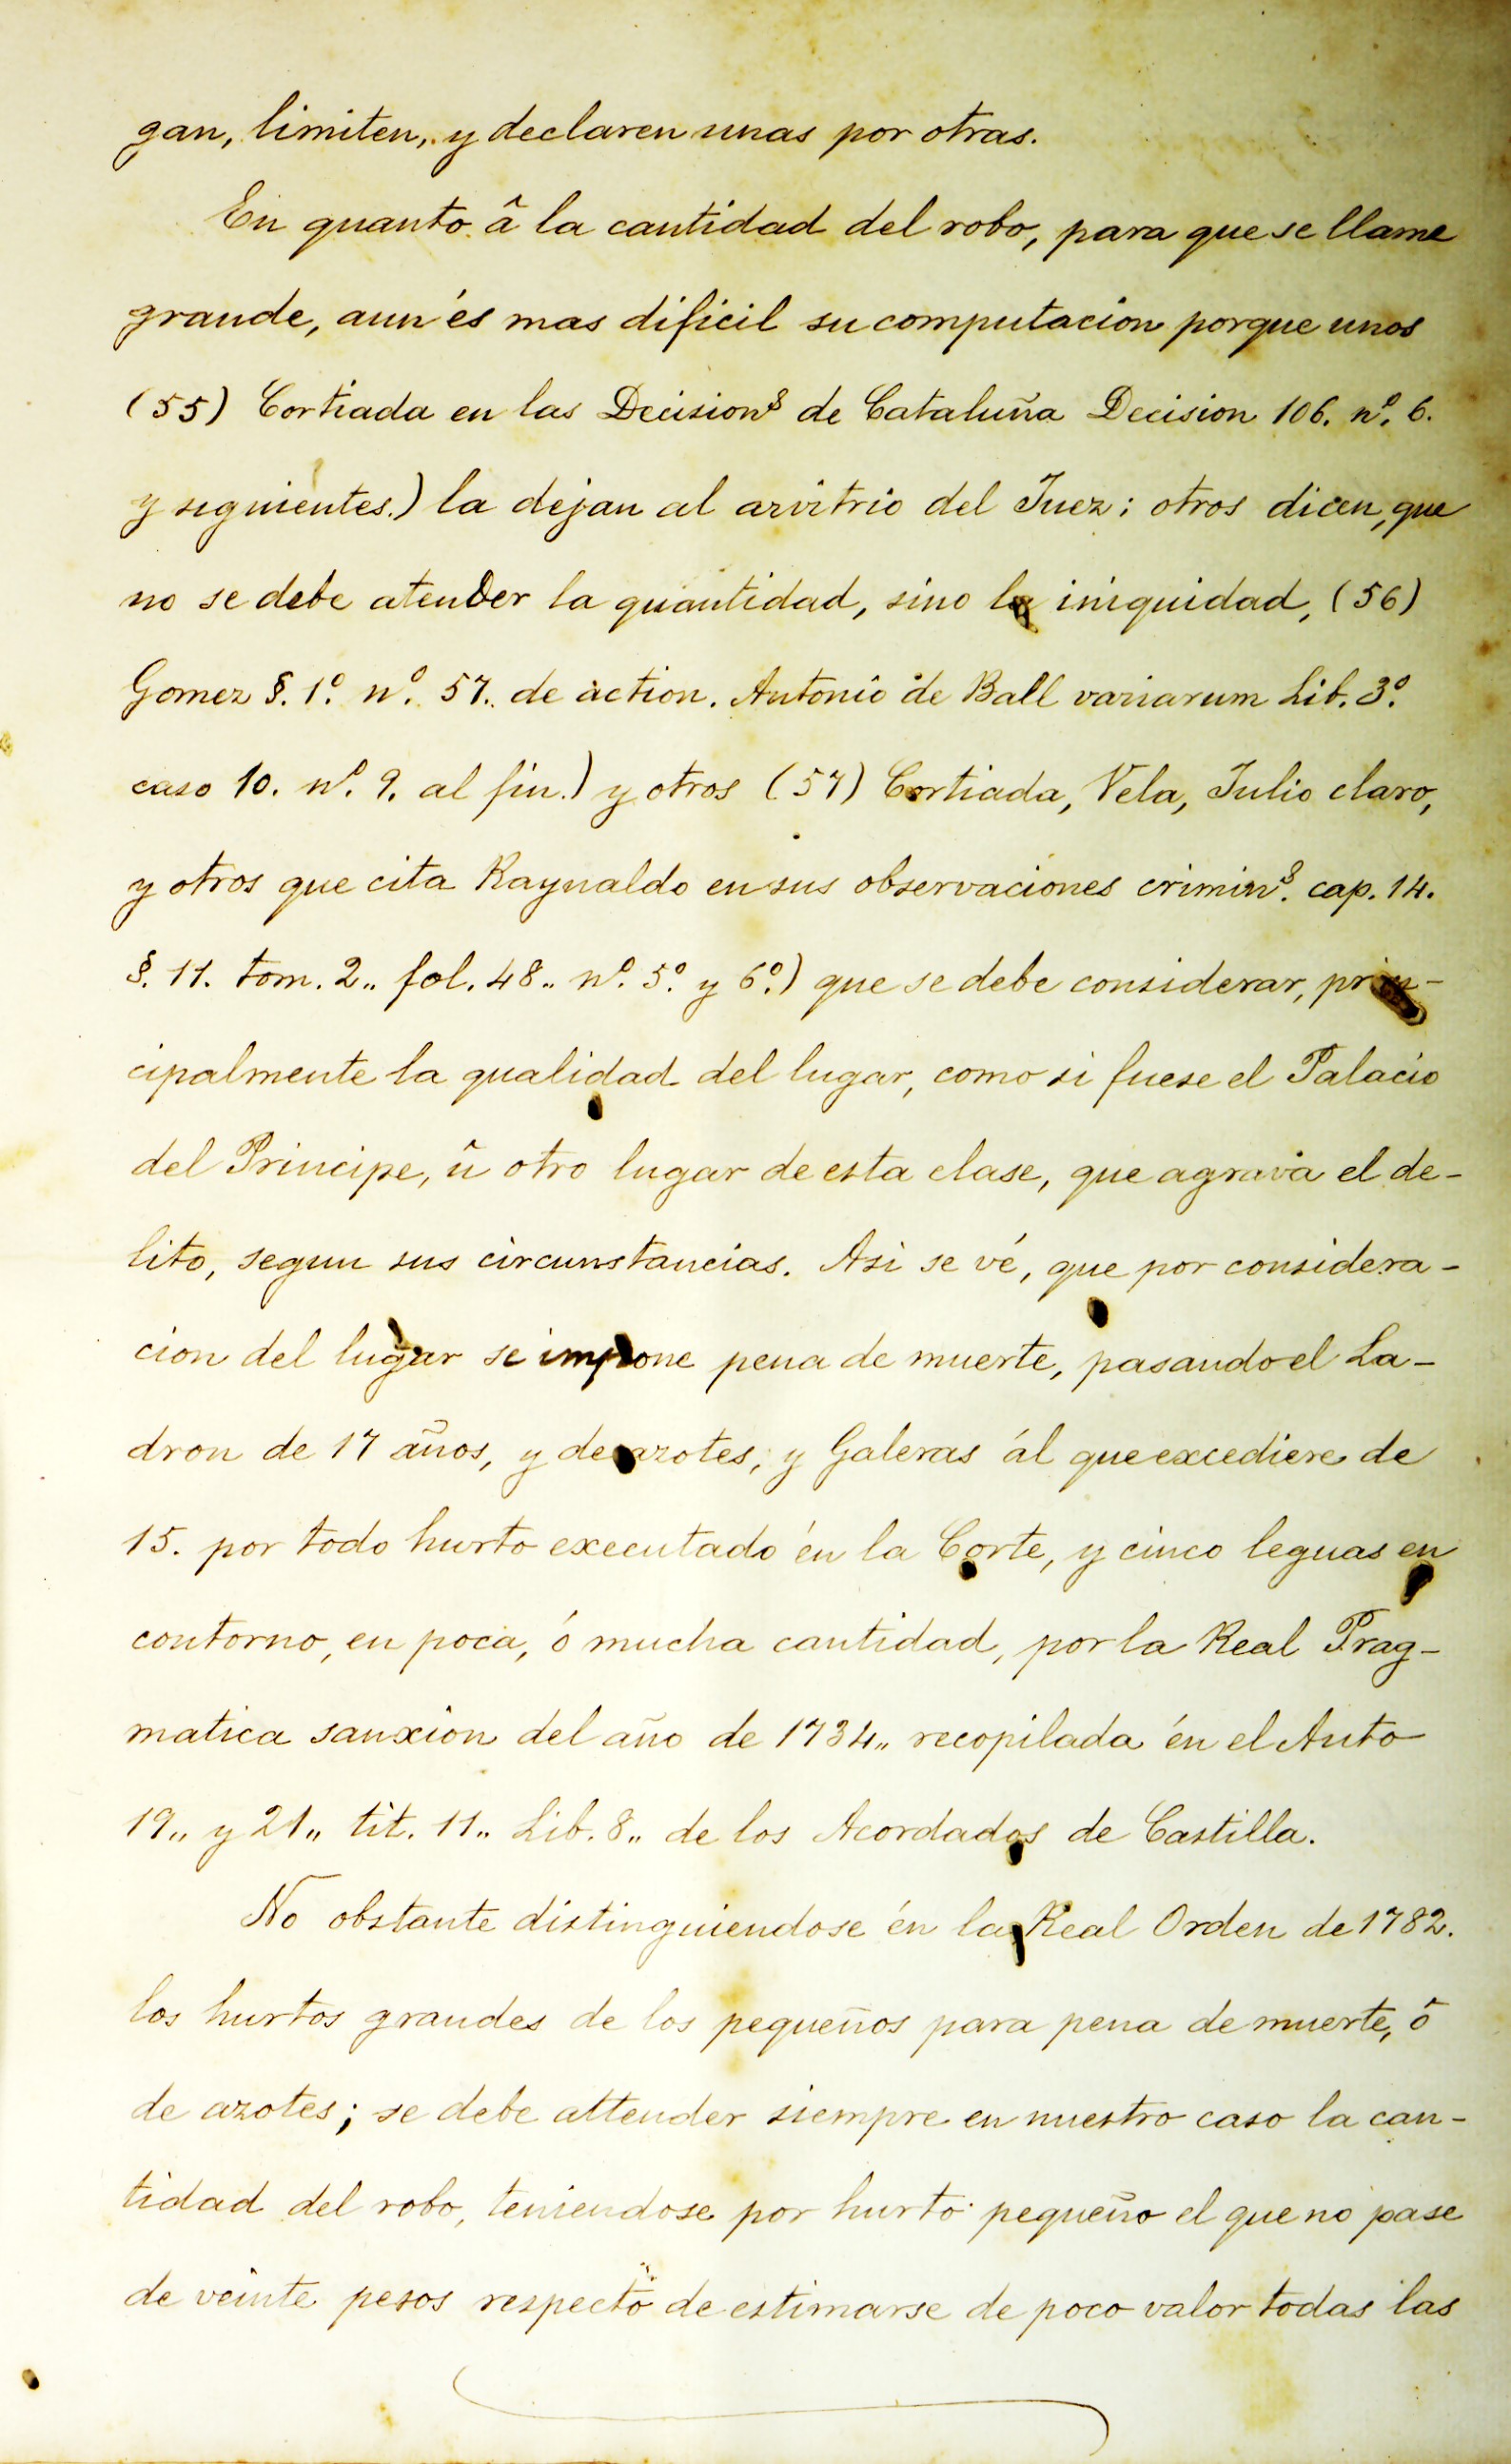 gan, limiten, y declaren unas por otras.
En quanto â la cantidad del robo, para que se llame
grande, aun és mas dificil su computacion porque unos
(55) Cortiada en las Decision.s de Cataluña Decision 106. nº. 6.
y siguientes.) la dejan al arvitrio del Juez; otros dicen, que
no se debe atender la quantidad, sino la iniquidad, (56)
Gomez §. 1º. nº. 57. de action. Antonio de Ball variarum Lib. 3º.
caso 10. nº. 9. al fin.) y otros (57) Cortiada, Vela, Julio claro,
y otros que cita Raynaldo en sus observaciones crimin.s cap. 14.
§. 11. tom. 2.. fol. 48.. nº. 5º. y 6º.) que se debe considerar, prin-
cipalmente la qualidad del lugar, como si fuese el Palacio
del Principe, û otro lugar de esta clase, que agrava el de-
lito, segun sus circunstancias. Asi se vé, que por considera-
cion del lugar se impone pena de muerte, pasando el La-
dron de 17 años, y de azotes, y Galeras ál que excediere de
15. por todo hurto executado én la Corte, y cinco leguas en
contorno, en poca, ó mucha cantidad, por la Real Prag-
matica sanxion del año de 1734.. recopilada én el Auto
19.. y 21.. tit. 11.. Lib. 8.. de los Acordados de Castilla.
No obstante distinguiendose én la Real Orden de 1782.
los hurtos grandes de los pequeños para pena de muerte, ô
de azotes; se debe attender siempre en nuestro caso la can-
tidad del robo, teniendose por hurto pequeño el que no pase
de veinte pesos respecto de estimarse de poco valor todas las